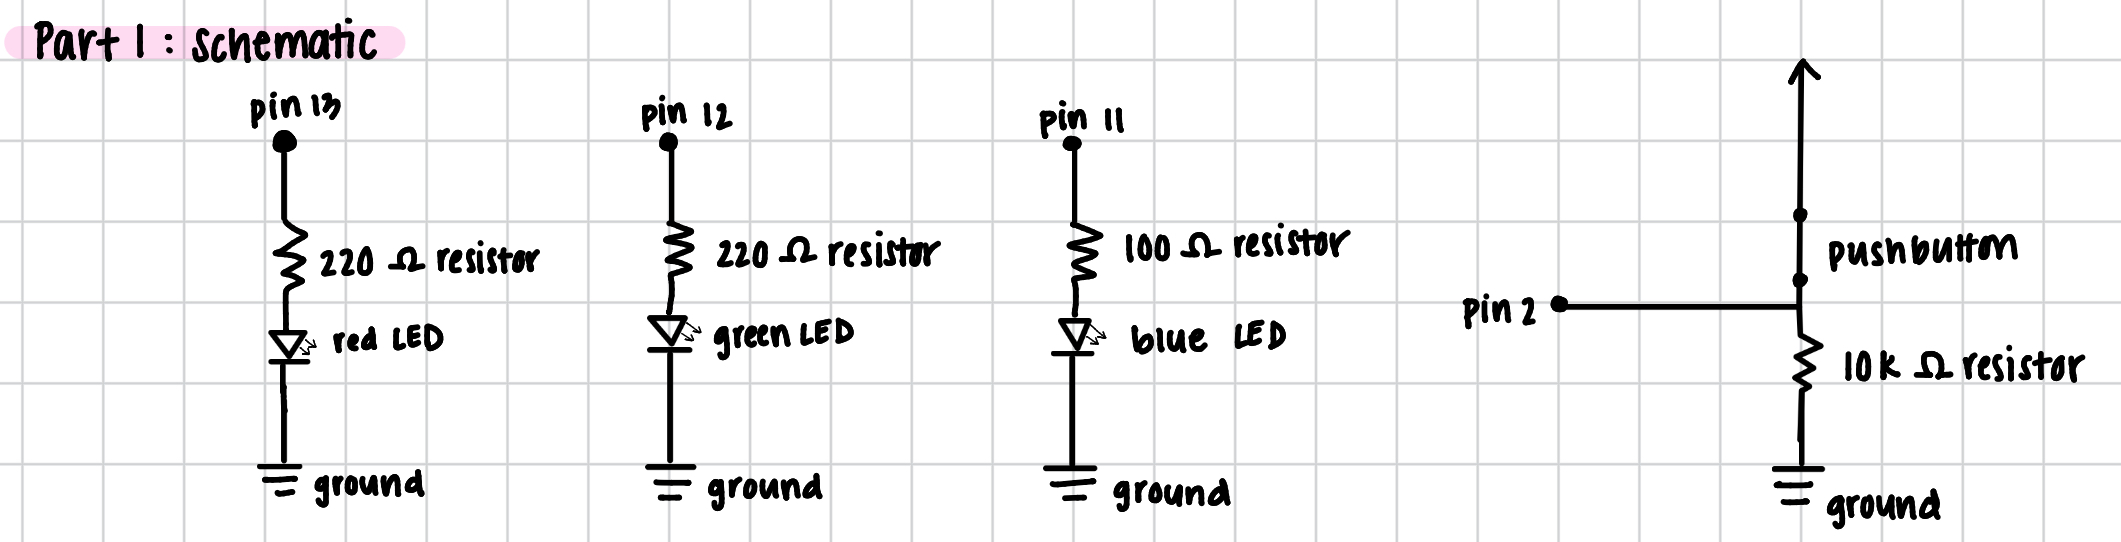 Part 1: schematic
pin 13
220 Ω resistor
red LED
ground
pin 12
220 Ω resistor
green LED
ground
pin 11
100 Ω resistor
blue LED
ground
pushbutton
pin 2
10k Ω resistor
ground